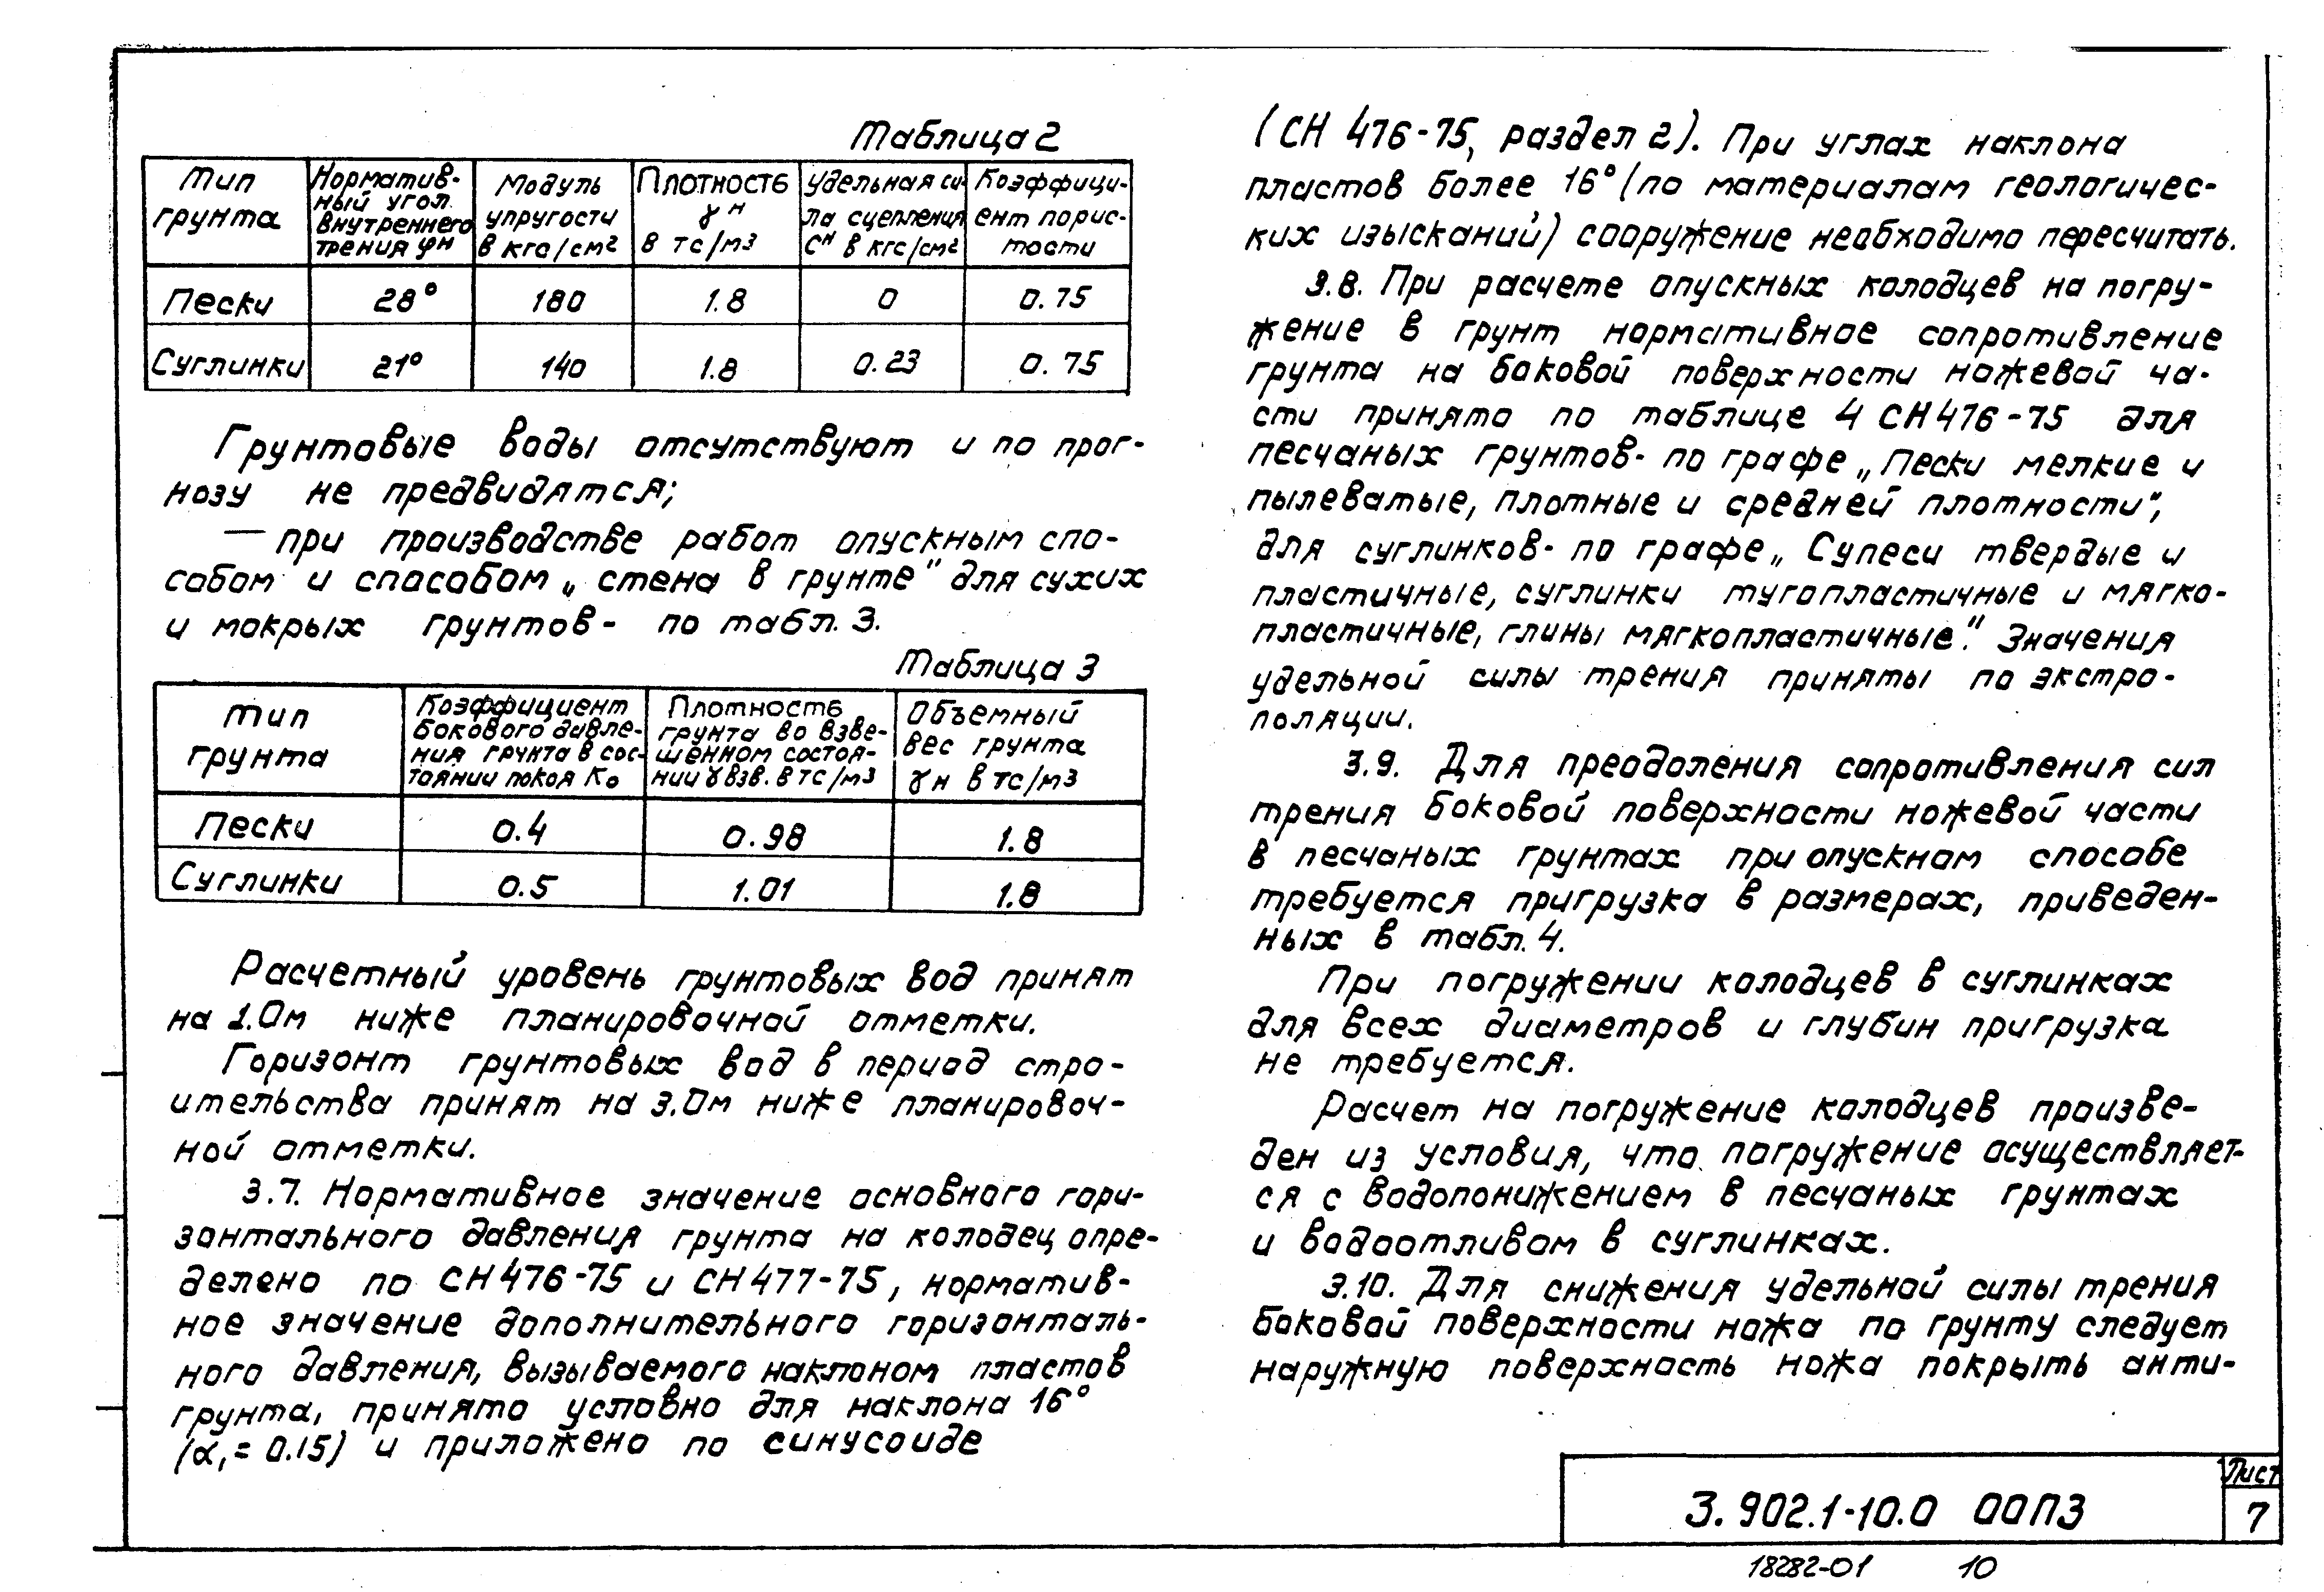 Таблица 2
Тип грунта | Норматив-ный угол внутреннего трения φн | Модуль упругости в кгс/см2 | Плотность γн в тс/м3 | Удельная си-ла сцепления Сн в кгс/см2 | Коэффици-ент порис-тости
Пески | 28° | 180 | 1.8 | 0 | 0.75
Суглинки | 21° | 140 | 1.8 | 0.23 | 0.75
Грунтовые воды отсутствуют и по прог-
нозу не предвидятся;
— при производстве работ опускным спо-
собом и способом „стена в грунте" для сухих
и мокрых грунтов - по табл. 3.
Таблица 3
Тип грунта | Коэффициент бокового давле-ния грунта в сос-тоянии покоя Ко | Плотность грунта во взве-шенном состоя-нии γ взв. в тс/м3 | Объемный вес грунта γн в тс/м3
Пески | 0.4 | 0.98 | 1.8
Суглинки | 0.5 | 1.01 | 1.8
Расчетный уровень грунтовых вод принят
на 1.0м ниже планировочной отметки.
Горизонт грунтовых вод в период стро-
ительства принят на 3.0м ниже планировоч-
ной отметки.
3.7. Нормативное значение основного гори-
зонтального давления грунта на колодец опре-
делено по СН 476-75 и СН 477-75, норматив-
ное значение дополнительного горизонталь-
ного давления, вызываемого наклоном пластов
грунта, принято условно для наклона 16°
(α1=0.15) и приложено по синусоиде
(СН 476-75, раздел 2). При углах наклона
пластов более 16° (по материалам геологичес-
ких изысканий) сооружение необходимо пересчитать.
3.8. При расчете опускных колодцев на погру-
жение в грунт нормативное сопротивление
грунта на боковой поверхности ножевой ча-
сти принято по таблице 4 СН 476-75 для
песчаных грунтов- по графе „Пески мелкие и
пылеватые, плотные и средней плотности",
для суглинков- по графе „Супеси твердые и
пластичные, суглинки тугопластичные и мягко-
пластичные, глины мягкопластичные". Значения
удельной силы трения приняты по экстро-
поляции.
3.9. Для преодоления сопротивления сил
трения боковой поверхности ножевой части
в песчаных грунтах при опускном способе
требуется пригрузка в размерах, приведен-
ных в табл. 4.
При погружении колодцев в суглинках
для всех диаметров и глубин пригрузка
не требуется.
Расчет на погружение колодцев произве-
ден из условия, что погружение осуществляет-
ся с водопонижением в песчаных грунтах
и водоотливом в суглинках.
3.10. Для снижения удельной силы трения
боковой поверхности ножа по грунту следует
наружную поверхность ножа покрыть анти-
3.902.1-10.0 00ПЗ
Лист
7
18282-01 10